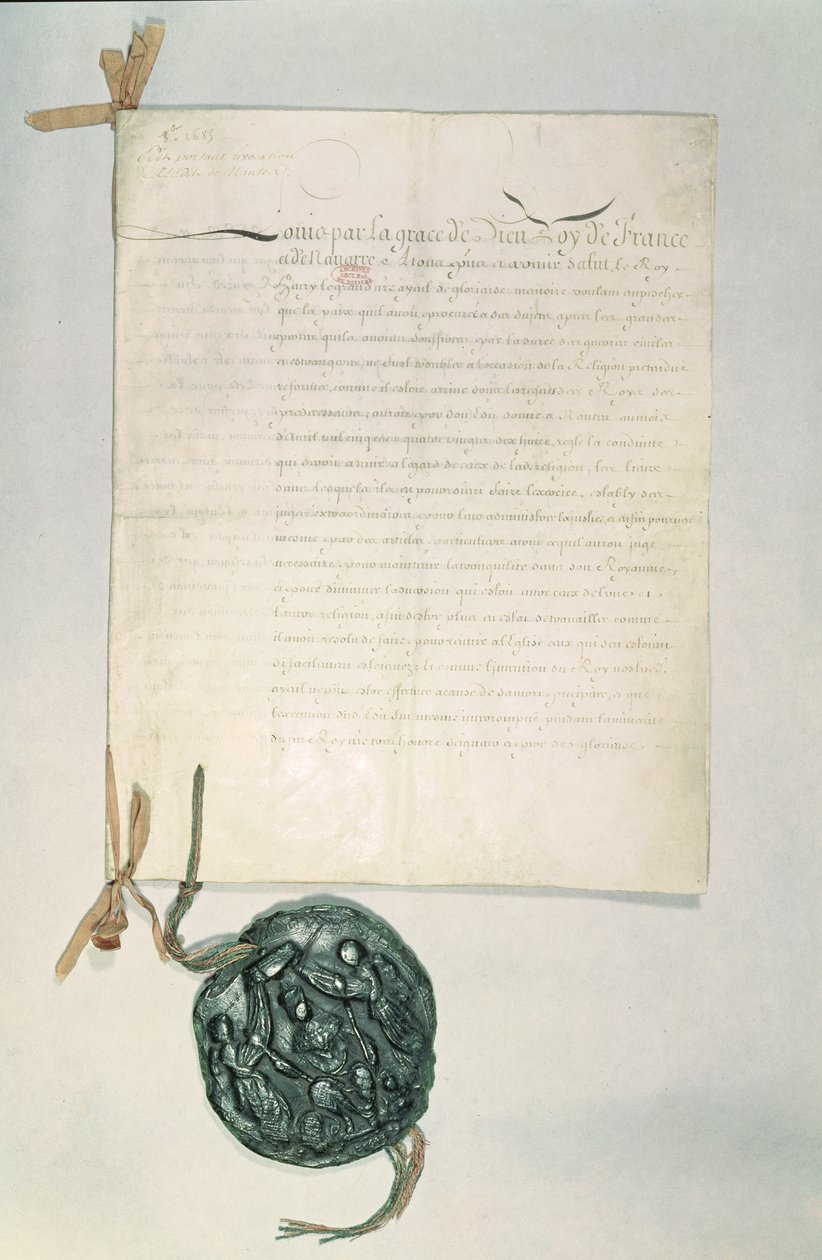 8bre 1685
Edit portant revocation
de l'Edit de Nantes.
Louis par La grace de Dieu Roy de France
et de Navarre A tous p'ns et avenir Salut Le Roy
ARCHIVES
DU ROYAUME
Henry le grand n're ayeul de glorieuse memoire voulant empescher
que la paix quil avoit procurée a ses sujets, apres les grandes
pertes quils avoient souffertes par la durée des guerres civiles
et estrangeres, ne fust troublée a l'occasion de la Religion pretendue
reformée, comme il estoit arrivé sous les regnes des Roys ses
predecesseurs, auroit par son Edit donné a Nantes au mois
d'avril mil cinq cens quatre vingts dix huict, reglé la conduitte
qui devoit a tenir a legard de ceux de lad. religion, les lieux
dans lesquels ils en pourroient faire lexercice, estably des
juges extraordinaires pour leur administrer la justice, et enfin pourveu
mesme par des articles particuliers a tout ce quil auroit jugé
necessaire pour maintenir la tranquilité dans son Royaume
et pour diminuer l'adversion qui estoit entre ceux de lune et
l'autre religion, afin destre plus en estat de travailler comme
il avoit resolu de faire pour reunir a l'Eglise ceux qui sen estoient
si facilement esloignez; Et comme l'intention du Roy nostred.
ayeul ne pût estre effectuée a cause de sa mort precipitée, et que
lexecution dud. Edit fut mesme interrompuë pendant la minorité
du feu Roy n're tres honoré seigneur et pere de glorieuse